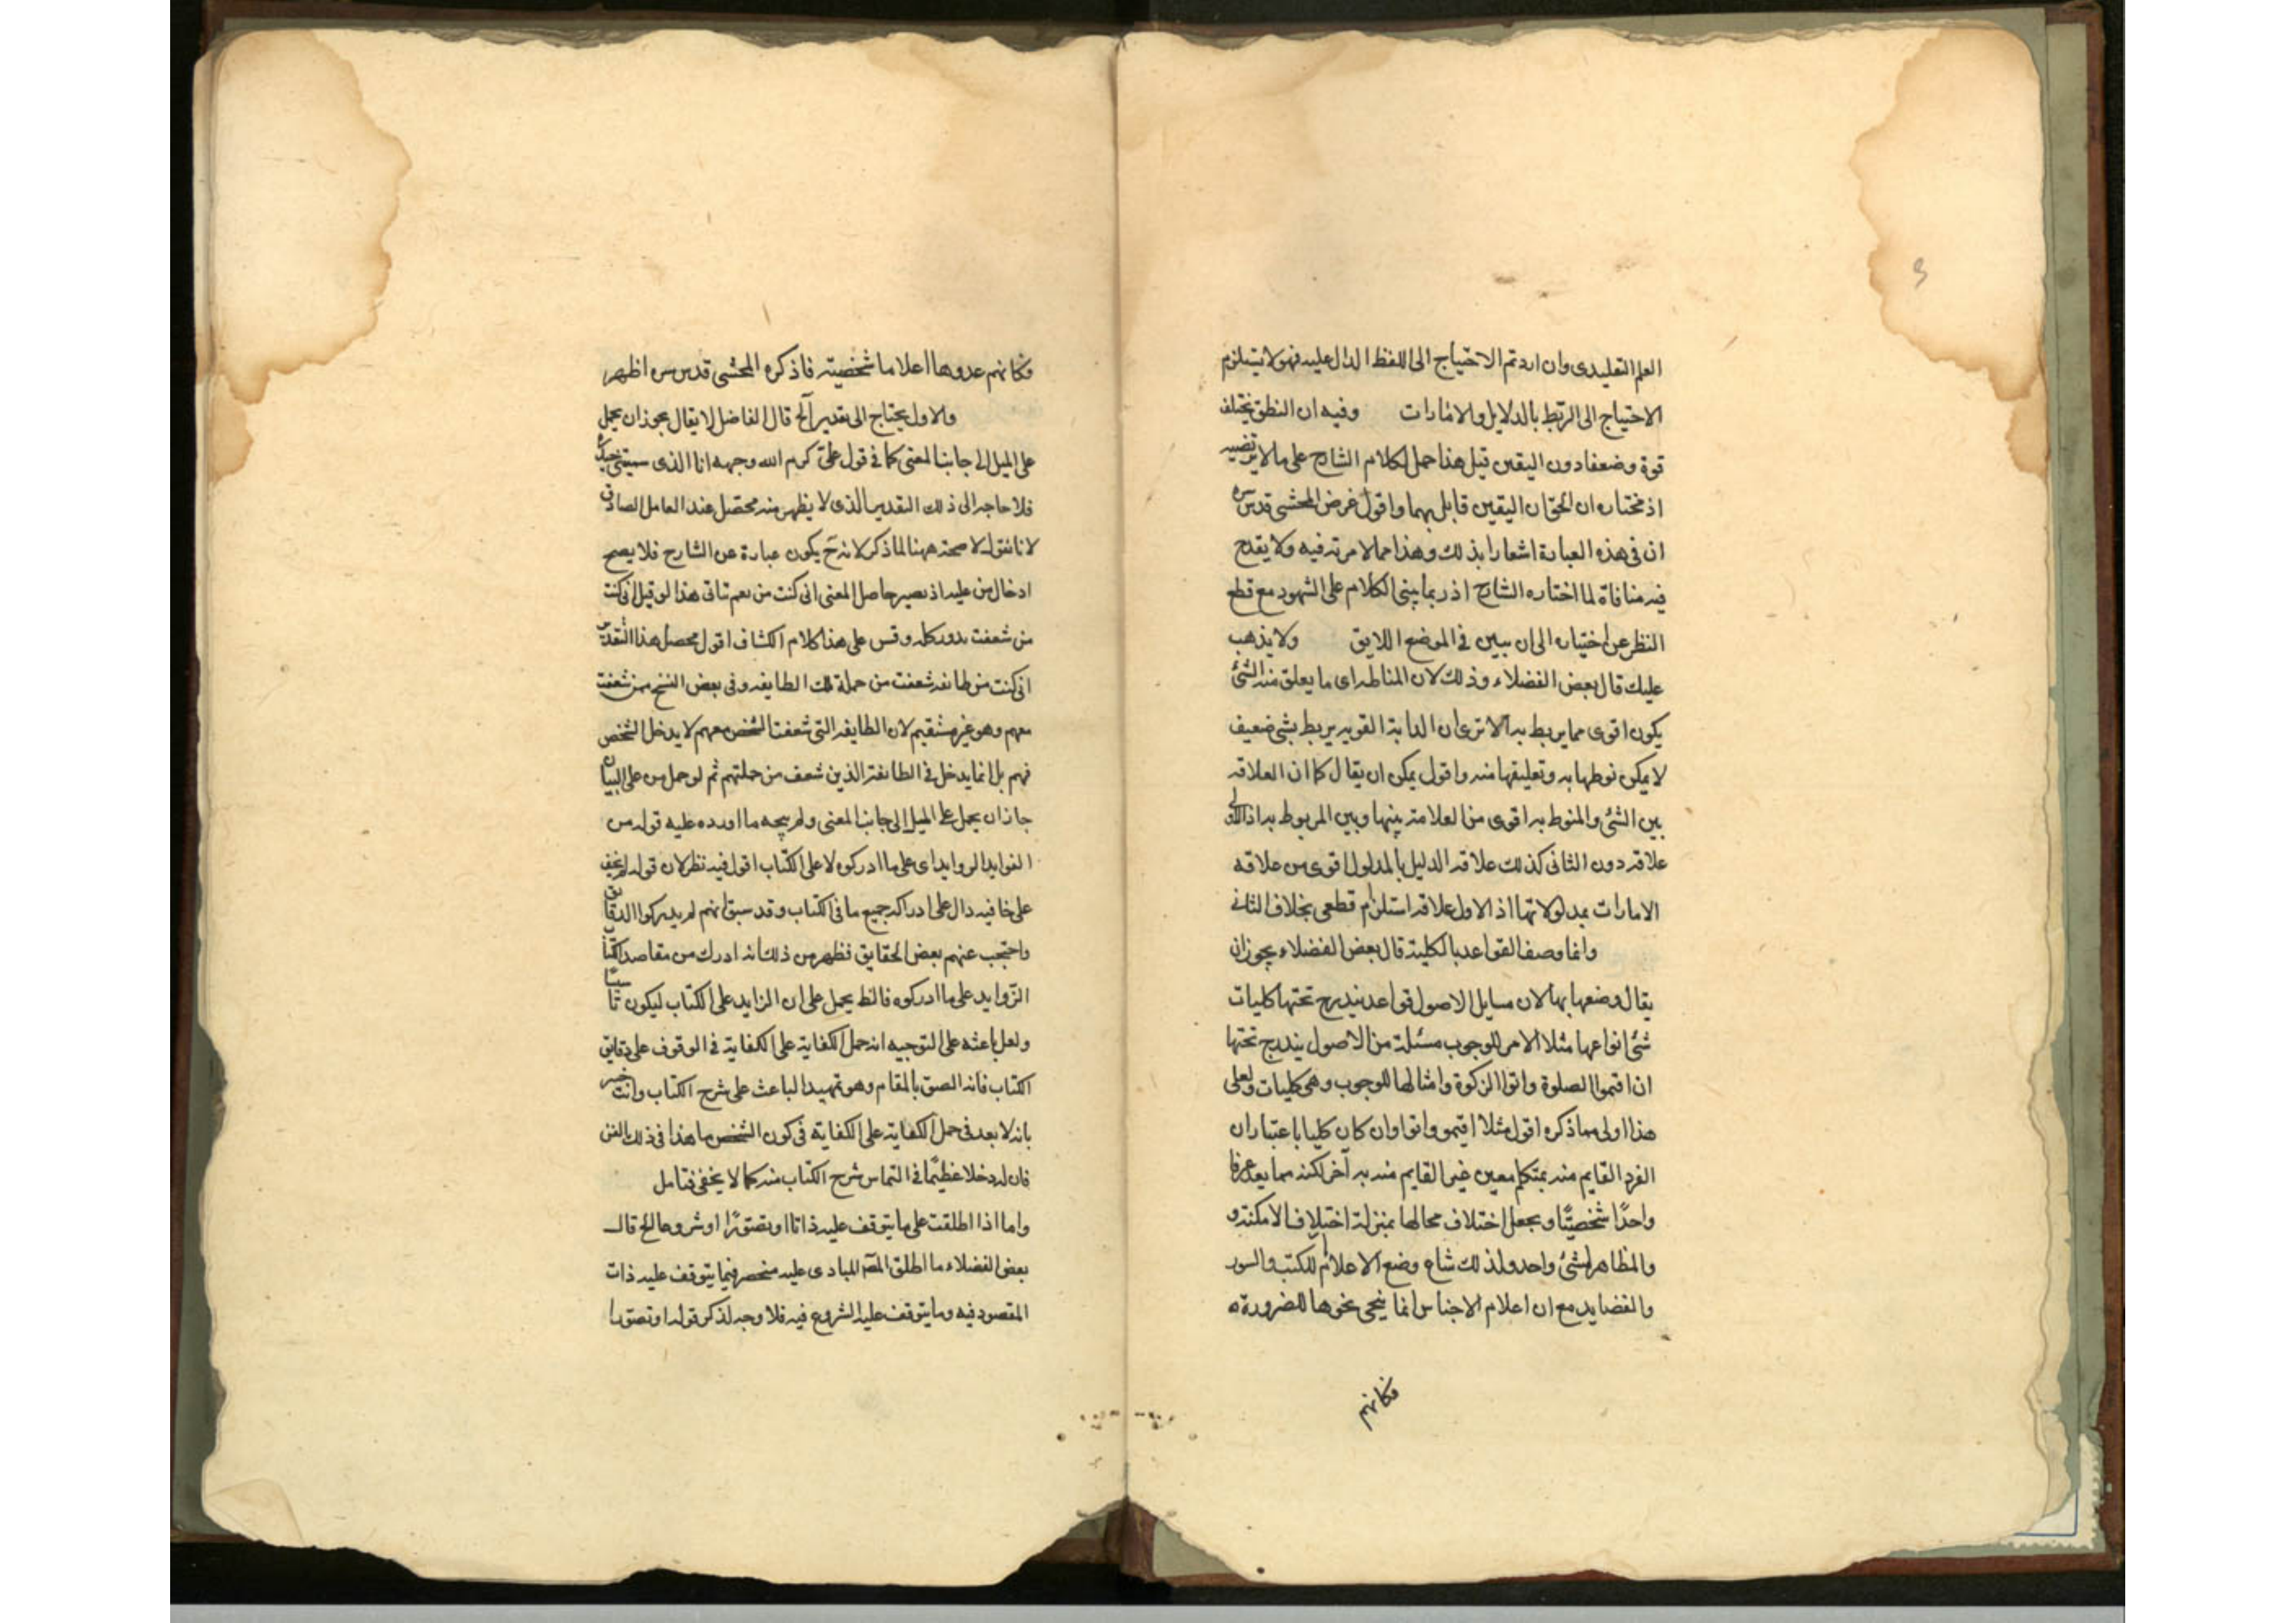 العلم التقليدى وان اردتم الاحتياج الى اللفظ الدال عليه فهو لا يستلزم
الاحتياج الى الربط بالدلايل والامارات وفيه ان النطق يختلف
قوة وضعفا دون اليقين قيل هذا حمل لكلام الشارح على ما لا يرتضيه
اذ مختاره ان الحق ان اليقين قابل بهما واقول غرض المحشى قدس سره
ان فى هذه العبارة اشعارا بذلك وهذا مما لا مرية فيه ولا يقدح
فيه منافاة لما اختاره الشارح اذ ربما يبنى الكلام على الشهود مع قطع
النظر عن اختياره الى ان يبين فى الموضع اللايق ولا يذهب
عليك قال بعض الفضلاء وذلك لان المناط به اى ما يعلق منه الشئ
يكون اقوى مما يربط به الا ترى ان الدابة القويه يربط بشئ ضعيف
لا يمكن نوطها به وتعليقها منه واقول يمكن ان يقال كما ان العلاقه
بين الشئ والمنوط به اقوى من العلامة بينها وبين المربوط به اذ الاولى
علاقه دون الثانى كذلك علاقه الدليل بالمدلول اقوى من علاقه
الامارات بمدلولاتها اذ الاول علاقه استلزام قطعى بخلاف الثانى
وانما وصف القواعد بالكلية قال بعض الفضلاء يجوز ان
يقال وضعها بها لان مسايل الاصول قواعد يندرج تحتها كليات
شئ انواعها مثلا الامر للوجوب مسئلة من الاصول يندرج تحتها
ان اقيموا الصلوة واتوا الزكوة وامثالها للوجوب وهى كليات ولعل
هذا اولى مما ذكره اقول مثلا اقيموا واتوا وان كان كليا باعتبار ان
الفرد القايم منه بمتكلم معين غير القايم منه به آخر لكنه مما يعد عرفا
واحدًا شخصيًّا ويجعل اختلاف محالها بمنزلة اختلاف الامكنة و
والمظاهر لشئ واحد ولذلك شاع وضع الاعلام للكتب والسور
والقصايد مع ان اعلام الاجناس انما ينحى نحوها للضرورة
فكانهم
فكانهم عدوها اعلاما شخصية فاذكره المحشى قدس سره اظهر
والاول يحتاج الى تقدير آلخ قال الفاضل لا يقال يجوز ان يحمل
على الميل الى جانب المعنى كما فى قول على كرم الله وجهه انا الذى سمتنى حيدره
فلا حاجه الى ذلك التقدير الذى لا يظهر منه محصل عند العامل الصادق
لانا نقول لا صحة ههنا لما ذكر لانه ح يكون عبارة عن الشارح فلا يصح
ادخال من عليه اذ يصير حاصل المعنى انى كنت من نعم تاتى هذا لو قيل انى كنت
من شعفت بدور كله وقس على هذا كلام الكشاف اقول محصل هذا التقدير
انى كنت من طايفه شعفت من جملة تلك الطايفه وفى بعض النسخ ممن شعفت
معهم وهو غير مستقيم لان الطايفه التى شعفت الشخص معهم لا يدخل الشخص
فهم بل انما يدخل فى الطايفة الذين شعف من جملتهم ثم لو حمل من على البيان
جاز ان يحمل على الميل الى جانب المعنى ولم يتجه ما اورده عليه قوله من
الفوايد الروايد اى على ما ادركوه لا على الكتاب اقول فيه نظر لان قوله لم يخف
على خافيه دال على ادراكه جميع ما فى الكتاب وقد سبق انهم لم يدركوا الدقايق
واحتجب عنهم بعض الحقايق فظهر من ذلك انه ادرك من مقاصد الكتاب
الزوايد على ما ادركوه فالظ يحمل على ان الزايد على الكتاب ليكون
ولعل باعثه على التوجيه انه حمل الكفاية على الكفاية فى الوقوف على دقايق
الكتاب فانه الصق بالمقام وهو تمهيد الباعث على شرح الكتاب وانت خبير
بانه لا بعد فى حمل الكفاية على الكفاية فى كون الشخص ماهرا فى ذلك الفن
فان له دخلا عظيمًا فى التماس شرح الكتاب منه كما لا يخفى فتامل
واما اذا اطلقت على ما يتوقف عليه ذاتا او تصورًا او شروعا الخ قال
بعض الفضلاء ما اطلق المصـ المبادى عليه منحصر فيما يتوقف عليه ذات
المقصود فيه وما يتوقف عليه الشروع فيه فلا وجه لذكر قوله او تصورا